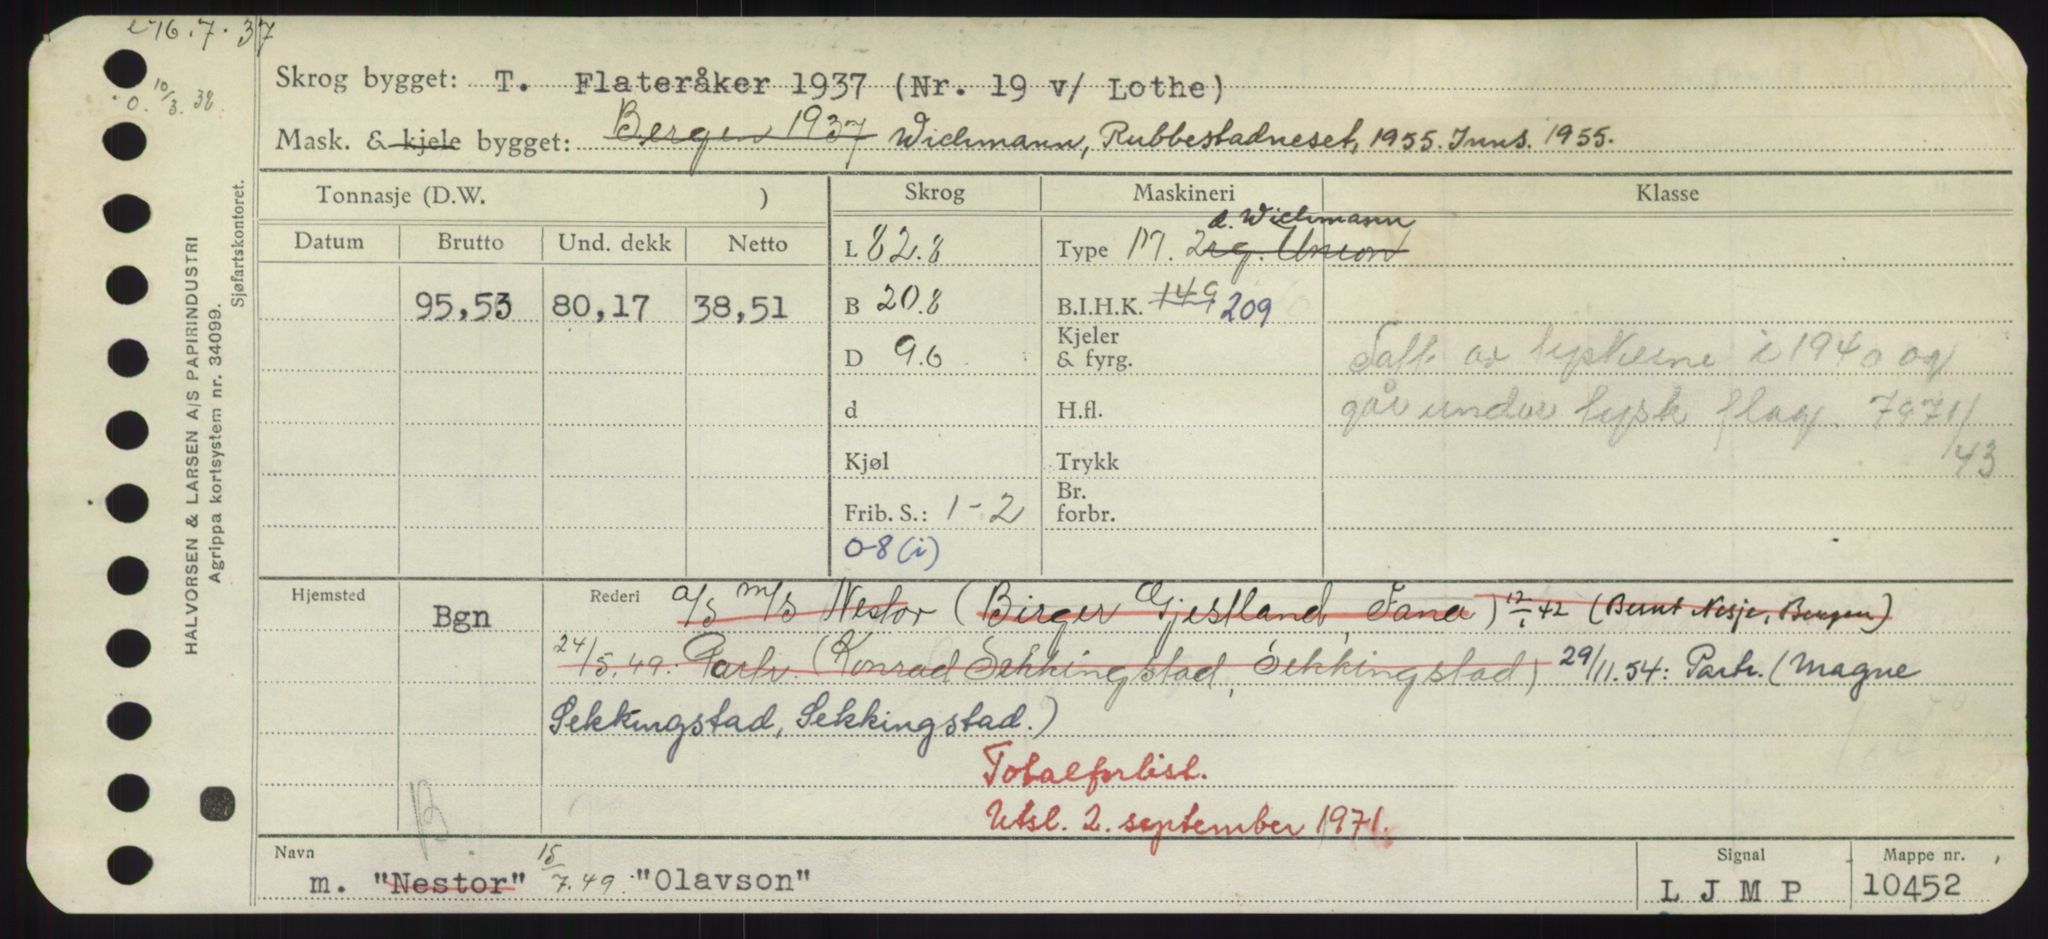 16.7.37
10/3.38.
Skrog bygget: T. Flateråker 1937 (Nr. 19 v/ Lothe)
Mask. & kjele bygget: Bergen 1937 Wichmann, Rubbestadneset, 1955. Inns. 1955.
Tonnasje (D.W. )
Skrog
Maskineri
Klasse
Datum
Brutto
Und. dekk
Netto
L 82.8
d. Wichmann
Type M. 2 eg. Union
95,53
80,17
38,51
B 20.8
B.I.H.K. 149 209
D 9.6
Kjeler & fyrg.
Tatt av tyskerne i 1940 og
går under tysk flag. 7971/43
d
H.fl.
Kjøl
Trykk
Frib. S.: 1-2
Br. forbr.
0-8 (i)
Hjemsted
Bgn
Rederi
a/s m/s Nestor (Birger Gjestland, Fana) 12/1 42 (Bernt Nesje, Bergen)
24/5.49: Partr. (Konrad Sekkingstad, Sekkingstad) 29/11.54: Partr. (Magne
Sekkingstad, Sekkingstad.)
Totalforlist.
Utsl. 2. september 1971.
B.
Navn
m. "Nestor" 15/7.49: "Olavson"
Signal
L J M P
Mappe nr.
10452
HALVORSEN & LARSEN A/S PAPIRINDUSTRI
Agrippa kortsystem nr. 34099.
Sjøfartskontoret.